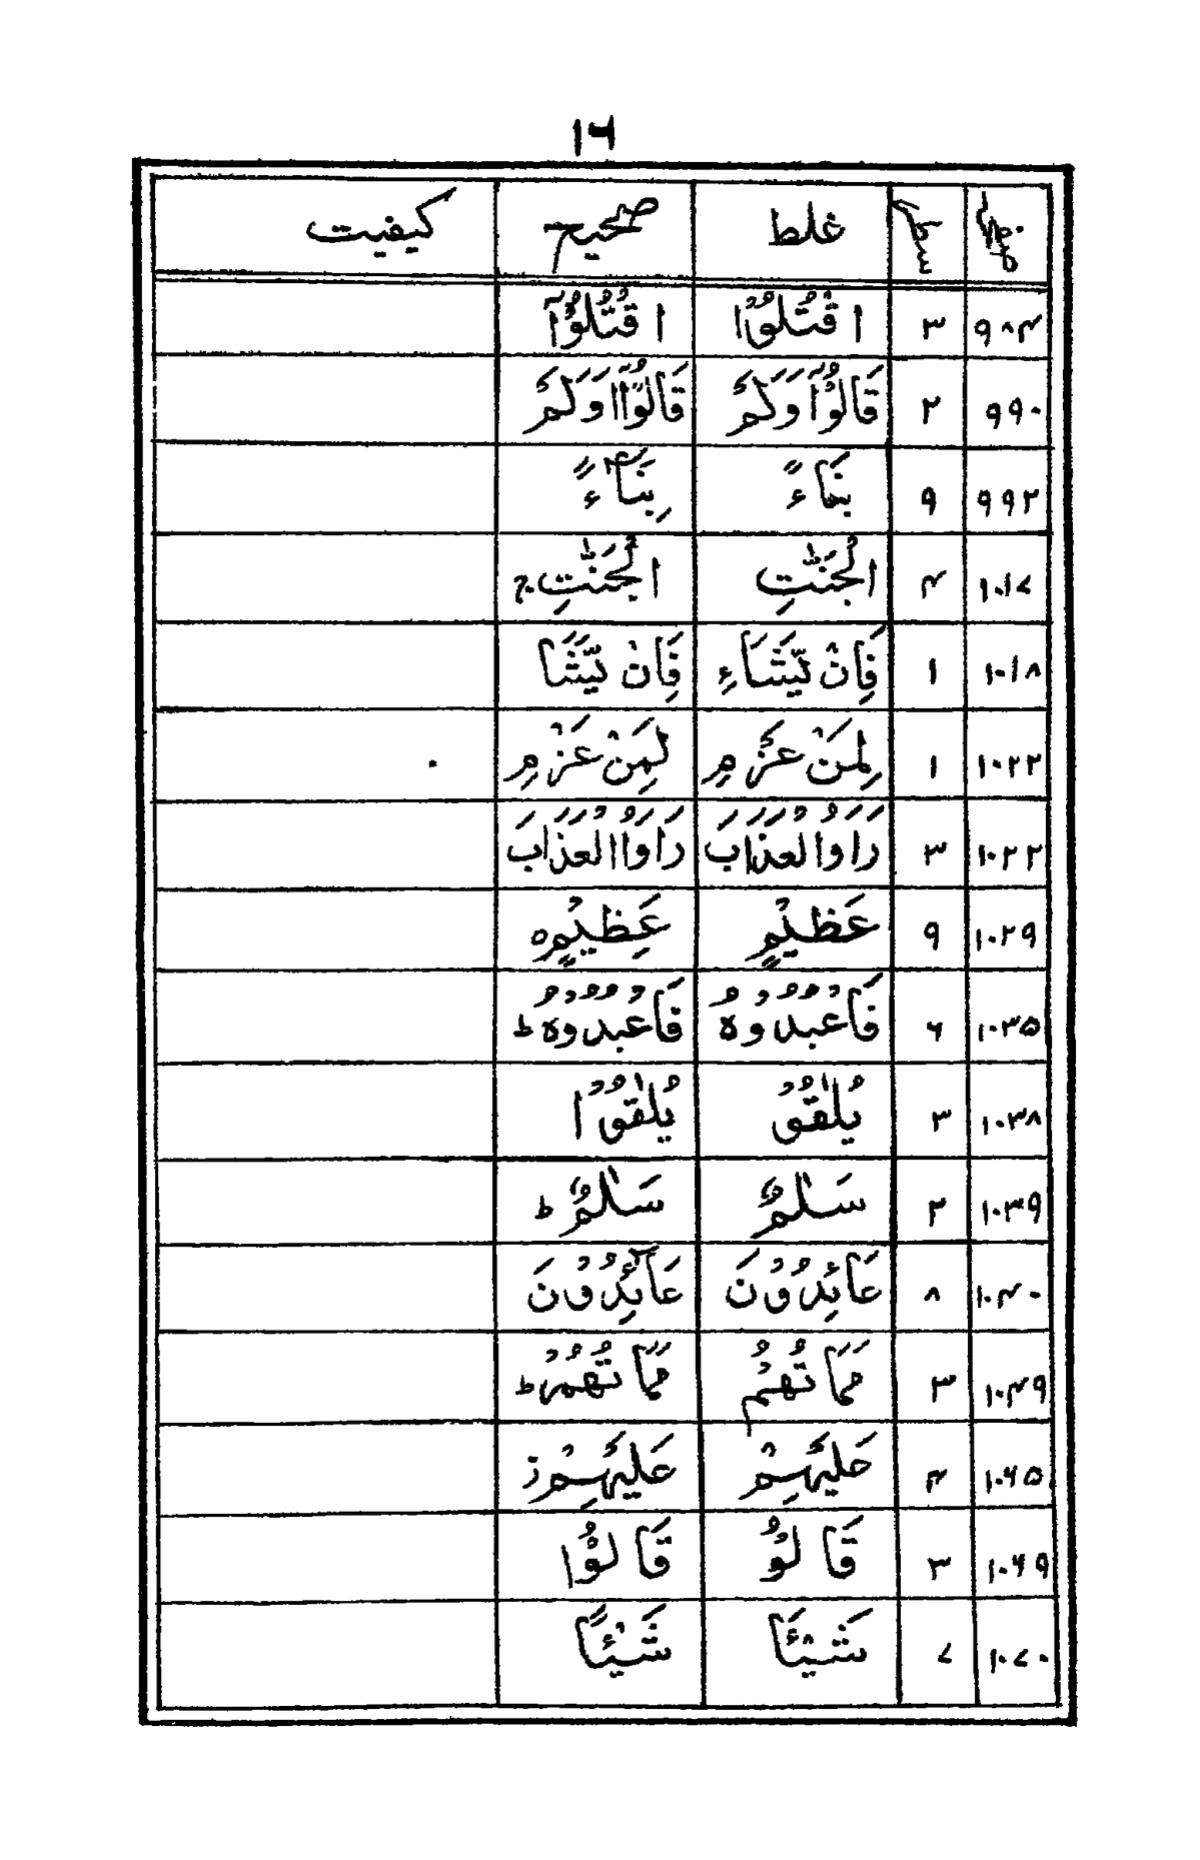 ۱۶
صفحہ سطر غلط صحیح کیفیت
۹۸۴ ۳ اقْتُلُوْا اقْتُلُوْٓا
۹۹۰ ۲ قَالُوْٓا وَلَمْ قَالُوْٓا اَوَلَمْ
۹۹۲ ۹ بِنَاءً بِنَآءً
۱۰۱۷ ۴ الْجَنّٰتِ الْجَنّٰتِ ج
۱۰۱۸ ۱ فَاِنْ یَّشَاءِ فَاِنْ یَّشَا
۱۰۲۲ ۱ لِمَنْ عَزْمِ لَمِنْ عَزْمِ
۱۰۲۲ ۳ رَاَوُا لْعَذَابَ رَاَوُا الْعَذَابَ
۱۰۲۹ ۹ عَظِیْمٍ عَظِیْمٍ ہ
۱۰۳۵ ۶ فَاعْبُدُوْهُ فَاعْبُدُوْهُ ط
۱۰۳۸ ۳ یُلٰقُوْ یُلٰقُوْا
۱۰۳۹ ۲ سَلٰمٌ سَلٰمٌ ط
۱۰۴۰ ۸ عَائِدُوْنَ عَآئِدُوْنَ
۱۰۴۹ ۳ مَمَاتُهُمْ مَمَاتُهُمْ ط
۱۰۶۵ ۴ عَلَیْهِمْ عَلَیْهِمْ ز
۱۰۶۹ ۳ قَالُوْ قَالُوْا
۱۰۷۰ ۷ شَیْئًا شَیْئًا